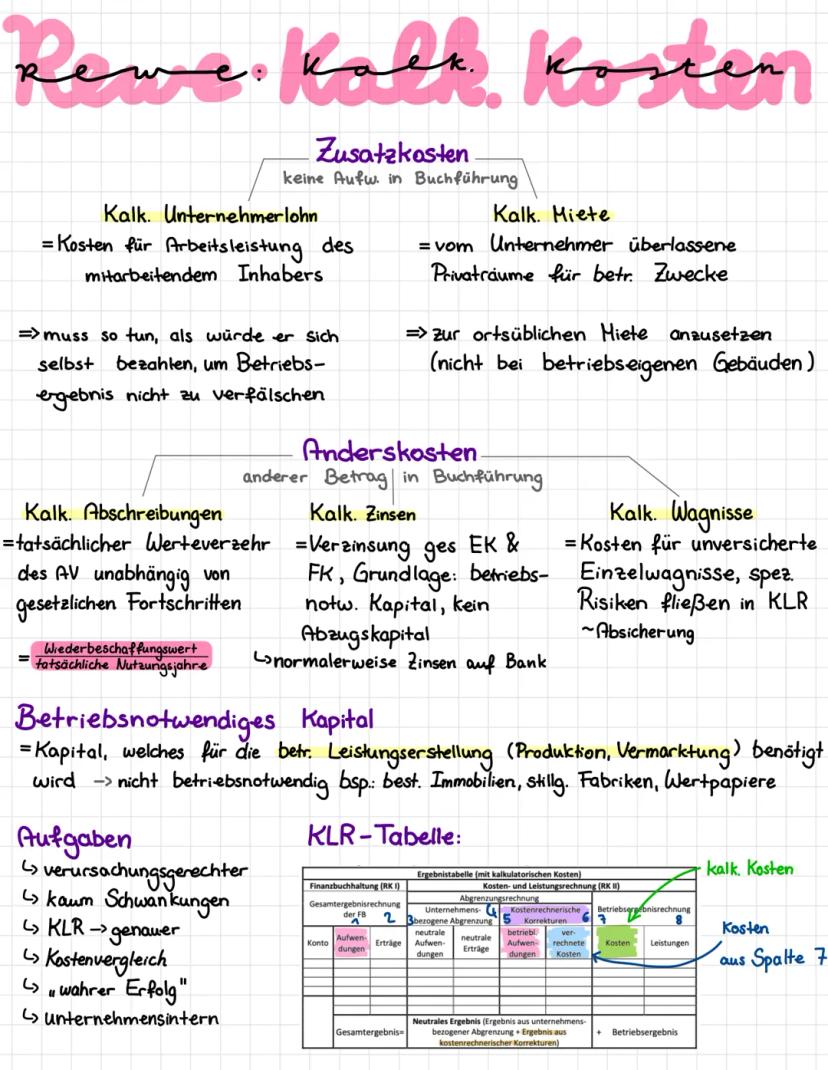 Rewe: Kalk. Kosten
Zusatzkosten
keine Aufw. in Buchführung
Kalk. Unternehmerlohn
= Kosten für Arbeitsleistung des
mitarbeitendem Inhabers
=> muss so tun, als würde er sich
selbst bezahlen, um Betriebs-
ergebnis nicht zu verfälschen
Kalk. Miete
= vom Unternehmer überlassene
Privaträume für betr. Zwecke
=> zur ortsüblichen Miete anzusetzen
(nicht bei betriebseigenen Gebäuden)
Anderskosten
anderer Betrag in Buchführung
Kalk. Abschreibungen
= tatsächlicher Werteverzehr
des AV unabhängig von
gesetzlichen Fortschritten
= Wiederbeschaffungswert
tatsächliche Nutzungsjahre
Kalk. Zinsen
= Verzinsung ges EK &
FK, Grundlage: betriebs-
notw. Kapital, kein
Abzugskapital
↳ normalerweise Zinsen auf Bank
Kalk. Wagnisse
= Kosten für unversicherte
Einzelwagnisse, spez.
Risiken fließen in KLR
~Absicherung
Betriebsnotwendiges Kapital
= Kapital, welches für die betr. Leistungserstellung (Produktion, Vermarktung) benötigt
wird -> nicht betriebsnotwendig bsp.: best. Immobilien, stillg. Fabriken, Wertpapiere
Aufgaben
↳ verursachungsgerechter
↳ kaum Schwankungen
↳ KLR -> genauer
↳ Kostenvergleich
↳ „wahrer Erfolg"
↳ unternehmensintern
KLR-Tabelle:
Ergebnistabelle (mit kalkulatorischen Kosten)
Finanzbuchhaltung (RK I)
Kosten- und Leistungsrechnung (RK II)
Gesamtergebnisrechnung
der FB
1 2
Abgrenzungsrechnung
Unternehmens-
bezogene Abgrenzung
3 4
Kostenrechnerische
Korrekturen
5 6
Betriebsergebnisrechnung
7 8
Konto
Aufwen-
dungen
Erträge
neutrale
Aufwen-
dungen
neutrale
Erträge
betriebl.
Aufwen-
dungen
ver-
rechnete
Kosten
Kosten
Leistungen
Gesamtergebnis=
Neutrales Ergebnis (Ergebnis aus unternehmens-
bezogener Abgrenzung + Ergebnis aus
kostenrechnerischer Korrekturen)
+ Betriebsergebnis
kalk. Kosten
Kosten
aus Spalte 7